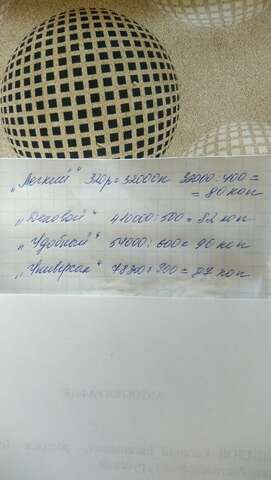 „Легкий" 320р = 32000к 32000:400 =
= 80 коп
„Деловой" 410000:500 = 82 коп
„Удобный" 54000:600 = 90 коп
„Универсал" 78300:900 = 87 коп